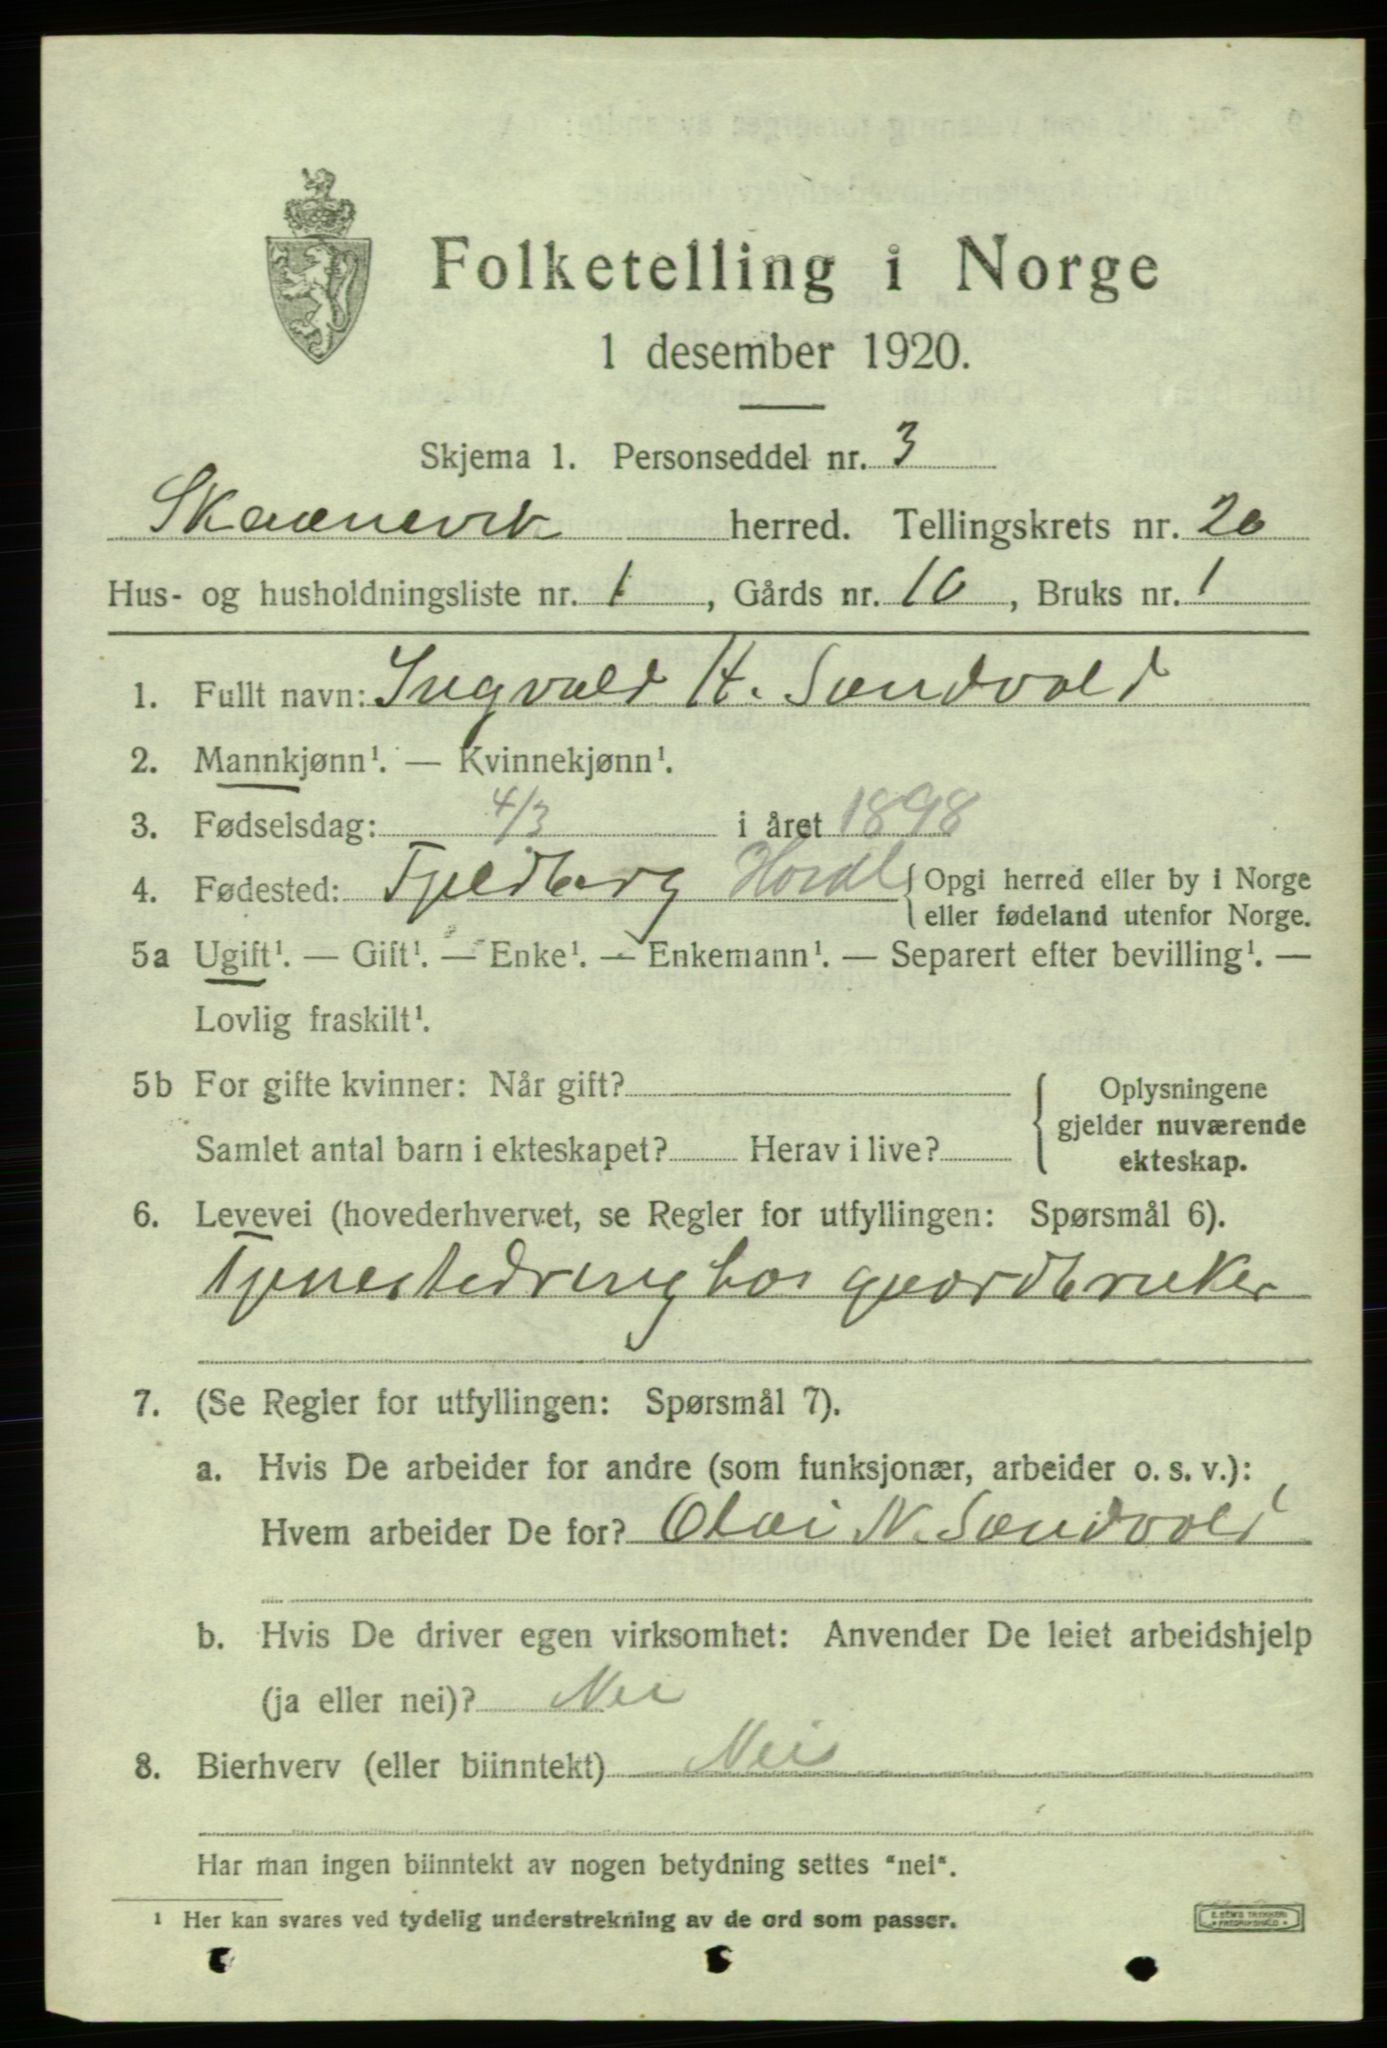 Folketelling i Norge
1 desember 1920.
Skjema 1. Personseddel nr. 3
Skaanevik herred. Tellingskrets nr. 20
Hus- og husholdningsliste nr. 1, Gårds nr. 10, Bruks nr. 1
1. Fullt navn: Ingvald H. Sandvold
2. Mannkjønn¹. — Kvinnekjønn¹.
3. Fødselsdag: 4/3 i året 1898
4. Fødested: Fjeldberg Hordl {Opgi herred eller by i Norge
eller fødeland utenfor Norge.
5a Ugift¹. — Gift¹. — Enke¹. — Enkemann¹. — Separert efter bevilling¹. —
Lovlig fraskilt¹.
5b For gifte kvinner: Når gift?
Samlet antal barn i ekteskapet? Herav i live?
{ Oplysningene
gjelder nuværende
ekteskap.
6. Levevei (hovederhvervet, se Regler for utfyllingen: Spørsmål 6).
Tjenestedreng hos gaardbruker
7. (Se Regler for utfyllingen: Spørsmål 7).
a. Hvis De arbeider for andre (som funksjonær, arbeider o. s. v.):
Hvem arbeider De for? Olai N. Sandvold
b. Hvis De driver egen virksomhet: Anvender De leiet arbeidshjelp
(ja eller nei)? Nei
8. Bierhverv (eller biinntekt) Nei
Har man ingen biinntekt av nogen betydning settes "nei".
¹ Her kan svares ved tydelig understrekning av de ord som passer.